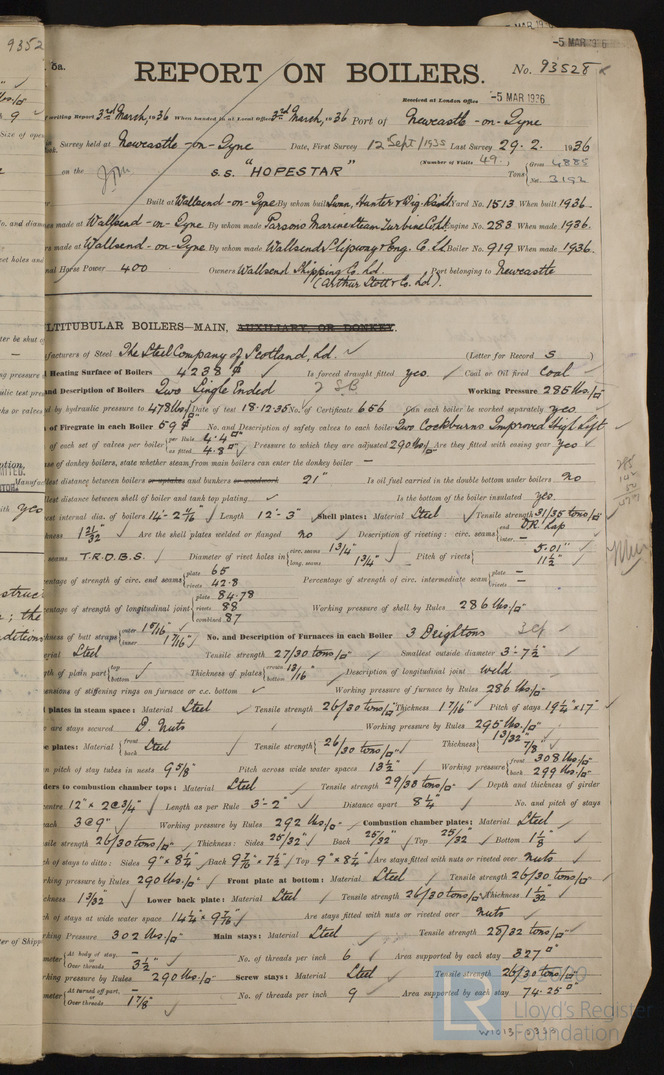 -5 MAR 1936
REPORT ON BOILERS.
No. 93528
Received at London Office -5 MAR 1936
writing Report 3rd March, 1936 When handed in at Local Office 3rd March, 1936 Port of Newcastle-on-Tyne
Survey held at Newcastle-on-Tyne Date, First Survey 12 Sept/1935 Last Survey 29.2. 1936
(Number of Visits 49.) Gross 4885
on the S.S. "HOPESTAR" Tons Net 3192
Built at Wallsend-on-Tyne By whom built Swan, Hunter & Wig. Rich. Ld Yard No. 1513 When built 1936.
made at Wallsend-on-Tyne By whom made Parsons Marine Steam Turbine Co. Ld. Engine No. 283 When made 1936.
made at Wallsend-on-Tyne By whom made Wallsend Slipway & Eng. Co. Ld. Boiler No. 919 When made 1936.
Horse Power 400 Owners Wallsend Shipping Co. Ld. Port belonging to Newcastle
(Arthur Stott & Co. Ld).
MULTITUBULAR BOILERS—MAIN, AUXILIARY OR DONKEY.
Manufacturers of Steel The Steel Company of Scotland, Ld. (Letter for Record S)
Heating Surface of Boilers 4238 Is forced draught fitted yes. Coal or Oil fired Coal
and Description of Boilers Two Single Ended 2 SB Working Pressure 285 lbs/
by hydraulic pressure to 478 lbs/ Date of test 18.12.35 No. of Certificate 656 Can each boiler be worked separately yes
of Firegrate in each Boiler 59 No. and Description of safety valves to each boiler Two Cockburns Improved High Lift
of each set of valves per boiler per Rule 4.4 as fitted 4.8 Pressure to which they are adjusted 290 lbs/ Are they fitted with easing gear yes
case of donkey boilers, state whether steam from main boilers can enter the donkey boiler —
distance between boilers or uptakes and bunkers or woodwork 21" Is oil fuel carried in the double bottom under boilers no
distance between shell of boiler and tank top plating Is the bottom of the boiler insulated yes
internal dia. of boilers 14'-2 7/16" Length 12'-3" Shell plates: Material Steel Tensile strength 31/35 tons/
1 21/32 Are the shell plates welded or flanged no Description of riveting: circ. seams end D.R. Lap inter. —
seams T.R.D.B.S. Diameter of rivet holes in circ. seams 1 3/4" long. seams 1 3/4" Pitch of rivets 5.01" 11 1/2"
percentage of strength of circ. end seams plate 65 rivets 42.8 Percentage of strength of circ. intermediate seam plate — rivets —
percentage of strength of longitudinal joint plate 84.78 rivets 88 combined 87 Working pressure of shell by Rules 286 lbs/
thickness of butt straps outer 1 5/16" inner 1 7/16" No. and Description of Furnaces in each Boiler 3 Deightons
Steel Tensile strength 27/30 tons/ Smallest outside diameter 3'-7 1/2"
length of plain part top bottom Thickness of plates crown 13/16" bottom Description of longitudinal joint weld
dimensions of stiffening rings on furnace or c.c. bottom Working pressure of furnace by Rules 286 lbs/
plates in steam space: Material Steel Tensile strength 26/30 tons/ Thickness 1 7/16" Pitch of stays 19 1/4" × 17"
are stays secured D. Nuts Working pressure by Rules 295 lbs/
plates: Material front back Steel Tensile strength 26/30 tons/ Thickness 13/32" 7/8"
pitch of stay tubes in nests 9 5/8" Pitch across wide water spaces 13 1/2" Working pressure front 308 lbs/ back 299 lbs/
Girders to combustion chamber tops: Material Steel Tensile strength 29/33 tons/ Depth and thickness of girder
centre 12" × 2@3/4" Length as per Rule 3'-2" Distance apart 8 1/4" No. and pitch of stays
each 3@9" Working pressure by Rules 292 lbs/ Combustion chamber plates: Material Steel
tensile strength 26/30 tons/ Thickness: Sides 25/32" Back 25/32" Top 25/32" Bottom 1 1/8"
pitch of stays to ditto: Sides 9" × 8 1/4" Back 9 7/8" × 7 1/2" Top 9" × 8 1/4" Are stays fitted with nuts or riveted over nuts
working pressure by Rules 290 lbs/ Front plate at bottom: Material Steel Tensile strength 26/30 tons/
thickness 1 3/32 Lower back plate: Material Steel Tensile strength 26/30 tons/ Thickness 1 1/32
pitch of stays at wide water space 14 1/4" × 9 7/8" Are stays fitted with nuts or riveted over nuts
Working Pressure 302 lbs/ Main stays: Material Steel Tensile strength 28/32 tons/
diameter At body of stay, or Over threads 3 1/2" No. of threads per inch 6 Area supported by each stay 327
working pressure by Rules 290 lbs/ Screw stays: Material Steel Tensile strength 26/30 tons/
diameter At turned off part, or Over threads 1 7/8" No. of threads per inch 9 Area supported by each stay 74.25
© 2020
LR Lloyd's Register Foundation
W1013-0333